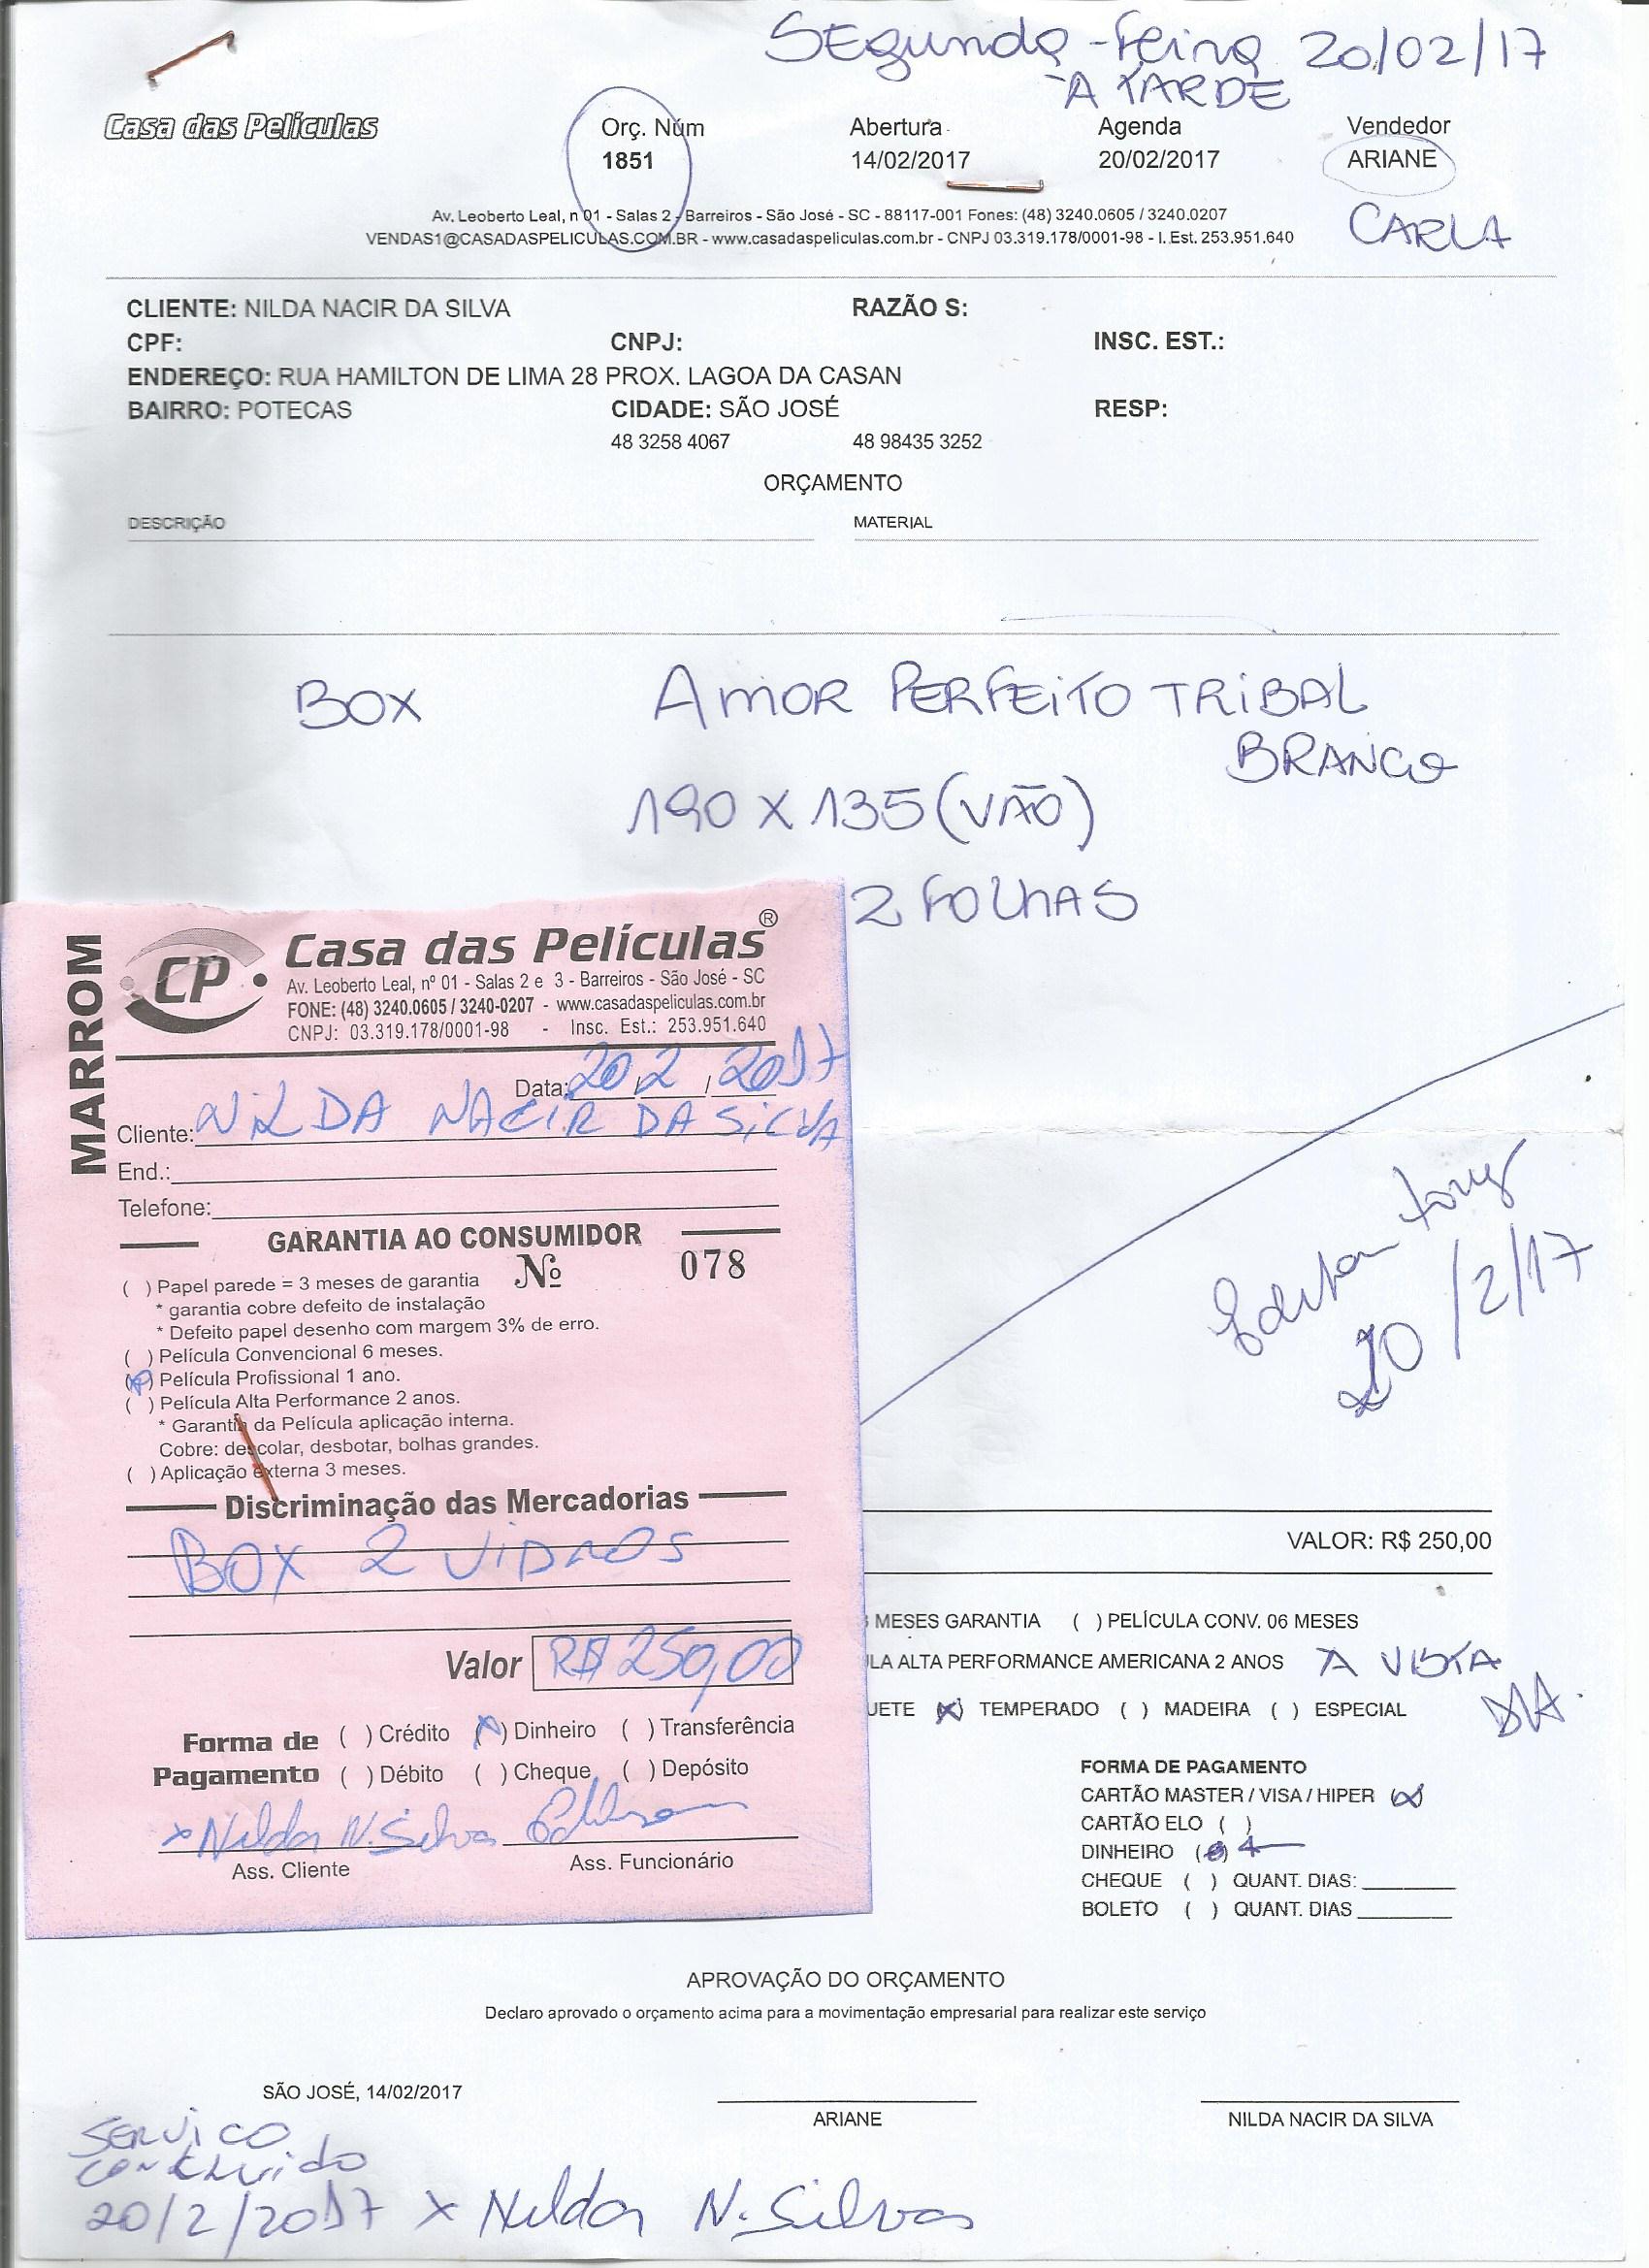 SEgunda-Feira 20/02/17
À TARDE
Casa das Películas
Orç. Núm Abertura Agenda Vendedor
1851 14/02/2017 20/02/2017 ARIANE
Av. Leoberto Leal, n 01 - Salas 2 - Barreiros - São José - SC - 88117-001 Fones: (48) 3240.0605 / 3240.0207
VENDAS1@CASADASPELICULAS.COM.BR - www.casadaspeliculas.com.br - CNPJ 03.319.178/0001-98 - I. Est. 253.951.640
CARLA
CLIENTE: NILDA NACIR DA SILVA RAZÃO S:
CPF: CNPJ: INSC. EST.:
ENDEREÇO: RUA HAMILTON DE LIMA 28 PROX. LAGOA DA CASAN
BAIRRO: POTECAS CIDADE: SÃO JOSÉ RESP:
48 3258 4067 48 98435 3252
ORÇAMENTO
DESCRIÇÃO MATERIAL
BOX AMOR PERFEITO TRIBAL
BRANCO
190 X 135 (VÃO)
2 FOLHAS
MARROM
CP
Casa das Películas®
Av. Leoberto Leal, nº 01 - Salas 2 e 3 - Barreiros - São José - SC
FONE: (48) 3240.0605 / 3240-0207 - www.casadaspeliculas.com.br
CNPJ: 03.319.178/0001-98 - Insc. Est.: 253.951.640
Data: 20/2/2017
Cliente: NILDA NACIR DA SILVA
End.:
Telefone:
GARANTIA AO CONSUMIDOR
Nº 078
( ) Papel parede = 3 meses de garantia
* garantia cobre defeito de instalação
* Defeito papel desenho com margem 3% de erro.
( ) Película Convencional 6 meses.
(X) Película Profissional 1 ano.
( ) Película Alta Performance 2 anos.
* Garantia da Película aplicação interna.
Cobre: descolar, desbotar, bolhas grandes.
( ) Aplicação externa 3 meses.
Discriminação das Mercadorias
BOX 2 VIDROS
Valor R$ 250,00
Forma de ( ) Crédito (X) Dinheiro ( ) Transferência
Pagamento ( ) Débito ( ) Cheque ( ) Depósito
x Nilda N. Silva
Ass. Cliente Ass. Funcionário
20/2/17
VALOR: R$ 250,00
MESES GARANTIA ( ) PELÍCULA CONV. 06 MESES
LA ALTA PERFORMANCE AMERICANA 2 ANOS À VISTA
UETE (X) TEMPERADO ( ) MADEIRA ( ) ESPECIAL
FORMA DE PAGAMENTO
CARTÃO MASTER / VISA / HIPER (X)
CARTÃO ELO ( )
DINHEIRO ( )
CHEQUE ( ) QUANT. DIAS:
BOLETO ( ) QUANT. DIAS
APROVAÇÃO DO ORÇAMENTO
Declaro aprovado o orçamento acima para a movimentação empresarial para realizar este serviço
SÃO JOSÉ, 14/02/2017
ARIANE NILDA NACIR DA SILVA
SERVICO
concluido
20/2/2017 x Nilda N. Silva